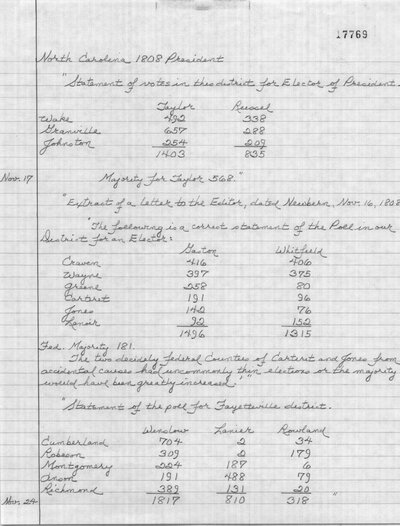 17769
North Carolina 1808 President
"Statement of votes in this district for Elector of President.
Taylor Russel
Wake 492 338
Granville 657 288
Johnston 254 209
1403 835
Nov. 17 Majority for Taylor 568."
"Extract of a letter to the Editor, dated Newbern, Nov. 16, 1808
"The following is a correct statement of the Poll in our
District for an Elector:
Gaston Whitfield
Craven 416 406
Wayne 397 375
Greene 258 80
Carteret 191 96
Jones 142 76
Lenoir 92 152
1496 1315
Fed. Majority 181.
The two decidely Federal Counties of Carterit and Jones from
accidental causes had uncommonly thin elections or the majority
would have been greatly increased."
"Statement of the poll for Fayetteville district.
Winslow Lanier Rowland
Cumberland 704 2 34
Robeson 309 2 179
Montgomery 224 187 6
Anson 191 488 79
Richmond 389 131 20
Nov. 24 1817 810 318 "